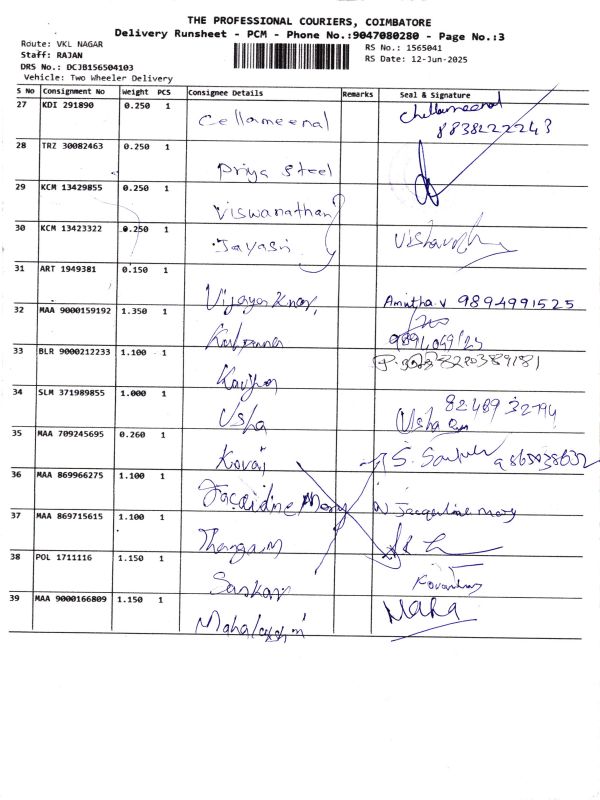 THE PROFESSIONAL COURIERS, COIMBATORE
Delivery Runsheet - PCM - Phone No.:9047080280 - Page No.:3
Route: VKL NAGAR
RS No.: 1565041
Staff: RAJAN
RS Date: 12-Jun-2025
DRS No.: DCJB156504103
Vehicle: Two Wheeler Delivery
S No Consignment No Weight PCS Consignee Details Remarks Seal & Signature
27 KDI 291890 0.250 1 Cellameenal Chellameenal
8838222243
28 TRZ 30082463 0.250 1 Priya Steel
29 KCM 13429855 0.250 1 Viswanathan
30 KCM 13423322 0.250 1 Jayasri
31 ART 1949381 0.150 1 Vijaya Kumar, Amutha.V 9894991525
32 MAA 9000159192 1.350 1 Kalpana
33 BLR 9000212233 1.100 1
34 SLM 371989855 1.000 1 Usha 82489 32794
Usha
35 MAA 709245695 0.260 1 Kovai S.
36 MAA 869966275 1.100 1 Jacqidine Mary N Jacqueline mary
37 MAA 869715615 1.100 1 Thangam
38 POL 1711116 1.150 1 Saskar
39 MAA 9000166809 1.150 1 Mahalaxmi Maha